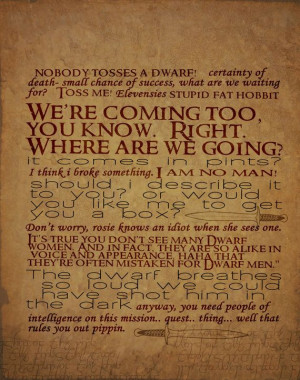 NOBODY TOSSES A DWARF! certainty of
death- small chance of success, what are we waiting
for? TOSS ME! Elevensies STUPID FAT HOBBIT
WE'RE COMING TOO,
YOU KNOW. RIGHT.
WHERE ARE WE GOING?
it comes in pints?
I think i broke something. I AM NO MAN!
should i describe it
to you? or would
you like me to get
you a box?
Don't worry, rosie knows an idiot when she sees one.
IT'S TRUE YOU DON'T SEE MANY DWARF
WOMEN. AND IN FACT, THEY ARE SO ALIKE IN
VOICE AND APPEARANCE, HAHA THAT
THEY'RE OFTEN MISTAKEN FOR DWARF MEN."
The dwarf breathes
so loud we could
have shot him in
the dark anyway, you need people of
intelligence on this mission.. quest.. thing... well that
rules you out pippin.